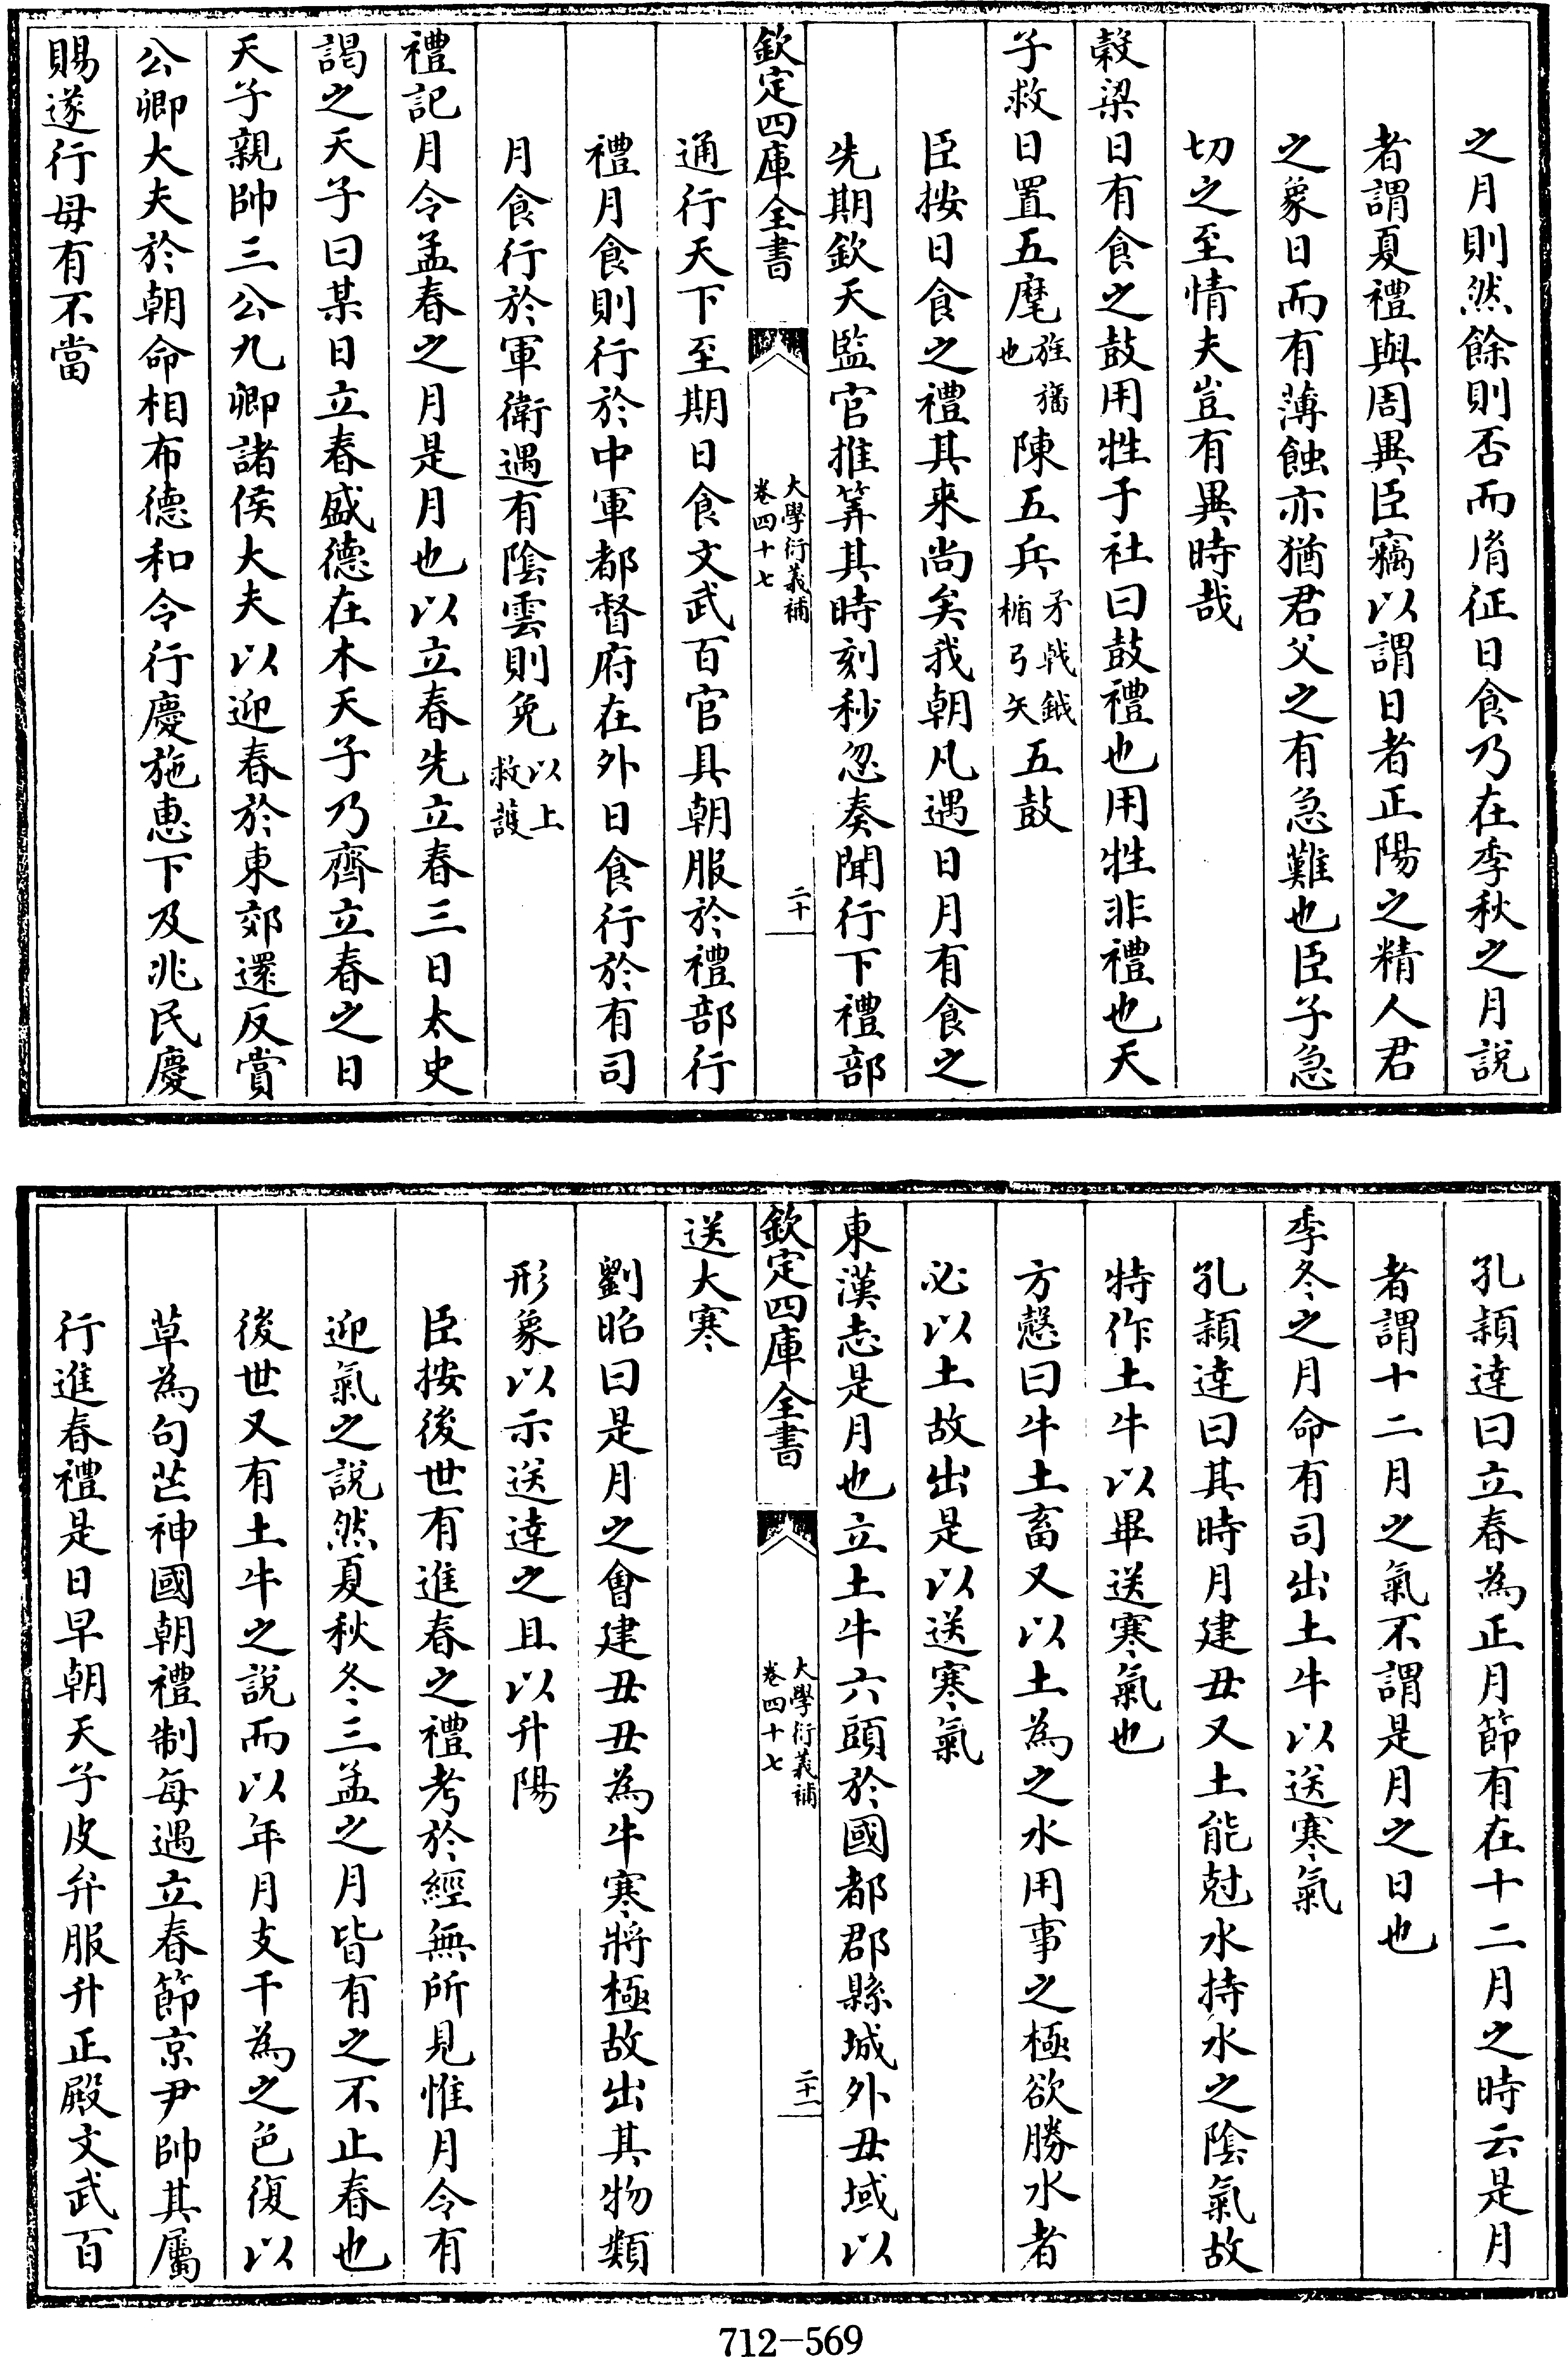 之月則然餘則否而胤征日食乃在季秋之月説
者謂夏禮與周異臣竊以謂日者正陽之精人君
之象日而有薄蝕亦猶君父之有急難也臣子急
切之至情夫豈有異時哉
穀梁日有食之鼓用牲于社曰鼓禮也用牲非禮也天
子救日置五麾旌旛也陳五兵矛戟鉞楯弓矢五鼓
臣按日食之禮其来尚矣我朝凡遇日月有食之
先期欽天監官推筭其時刻秒忽奏聞行下禮部
欽定四庫全書
大學衍義補
卷四十七
二十
通行天下至期日食文武百官具朝服於禮部行
禮月食則行於中軍都督府在外日食行於有司
月食行於軍衛遇有陰雲則免以上救護
禮記月令孟春之月是月也以立春先立春三日太史
謁之天子曰某日立春盛德在木天子乃齊立春之日
天子親帥三公九卿諸侯大夫以迎春於東郊還反賞
公卿大夫於朝命相布德和令行慶施惠下及兆民慶
賜遂行毋有不當
孔穎達曰立春為正月節有在十二月之時云是月
者謂十二月之氣不謂是月之日也
季冬之月命有司出土牛以送寒氣
孔穎達曰其時月建丑又土能尅水持水之陰氣故
特作土牛以畢送寒氣也
方慤曰牛土畜又以土為之水用事之極欲勝水者
必以土故出是以送寒氣
東漢志是月也立土牛六頭於國都郡縣城外丑域以
欽定四庫全書
大學衍義補
卷四十七
二十一
送大寒
劉昭曰是月之會建丑丑為牛寒將極故出其物類
形象以示送達之且以升陽
臣按後世有進春之禮考於經無所見惟月令有
迎氣之説然夏秋冬三孟之月皆有之不止春也
後世又有土牛之説而以年月支干為之色復以
草為句芒神國朝禮制每遇立春節京尹帥其屬
行進春禮是日早朝天子皮弁服升正殿文武百
712-569